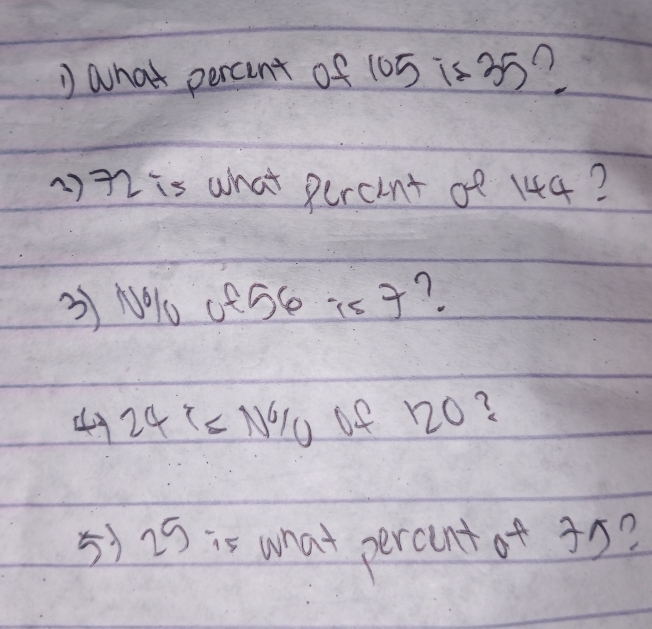 1) What percent of 105 is 35?
2) 72 is what percent of 144?
3) N% of 56 is 7?
4) 24 is N% of 120?
5) 25 is what percent of 75?